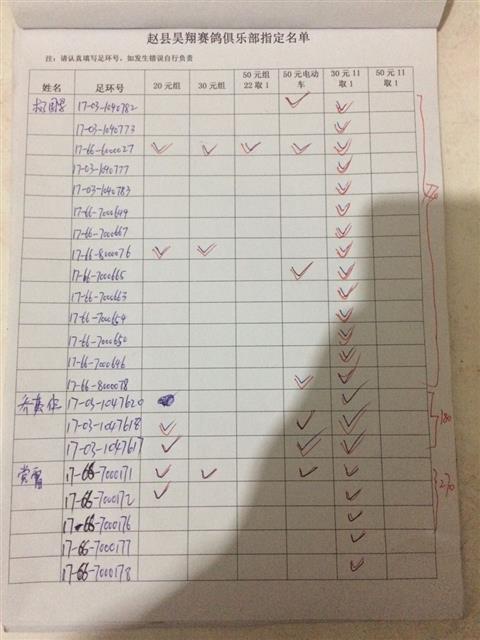 赵县昊翔赛鸽俱乐部指定名单
注：请认真填写足环号，如发生错误自行负责
姓名 足环号 20元组 30元组 50元组22取1 50元电动车 30元11取1 50元11取1
17-03-1040782 ✓ ✓
17-03-1040773 ✓
17-66-6000027 ✓ ✓ ✓ ✓ ✓
17-03-1040777 ✓
17-03-1040783 ✓
17-66-7000649 ✓
17-66-7000667 ✓
17-66-8000076 ✓ ✓ ✓
17-66-7000665 ✓ ✓
17-66-7000663 ✓
17-66-7000654 ✓
17-66-7000650 ✓
17-66-7000646 ✓
17-66-8000078 ✓ ✓
17-03-1047620 ✓
17-03-1047618 ✓ ✓ ✓ 180
17-03-1047617 ✓ ✓ ✓
17-66-7000171 ✓ ✓ ✓ ✓ 270
17-66-7000172 ✓ ✓
17-66-7000176 ✓
17-66-7000177 ✓
17-66-7000178 ✓